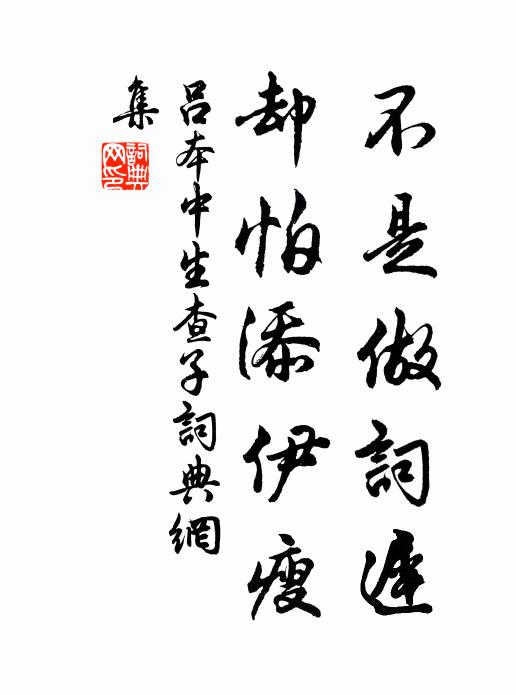 不是做詞遲
却怕添伊瘦
呂本中生查子詞典網
集
詞典
网印